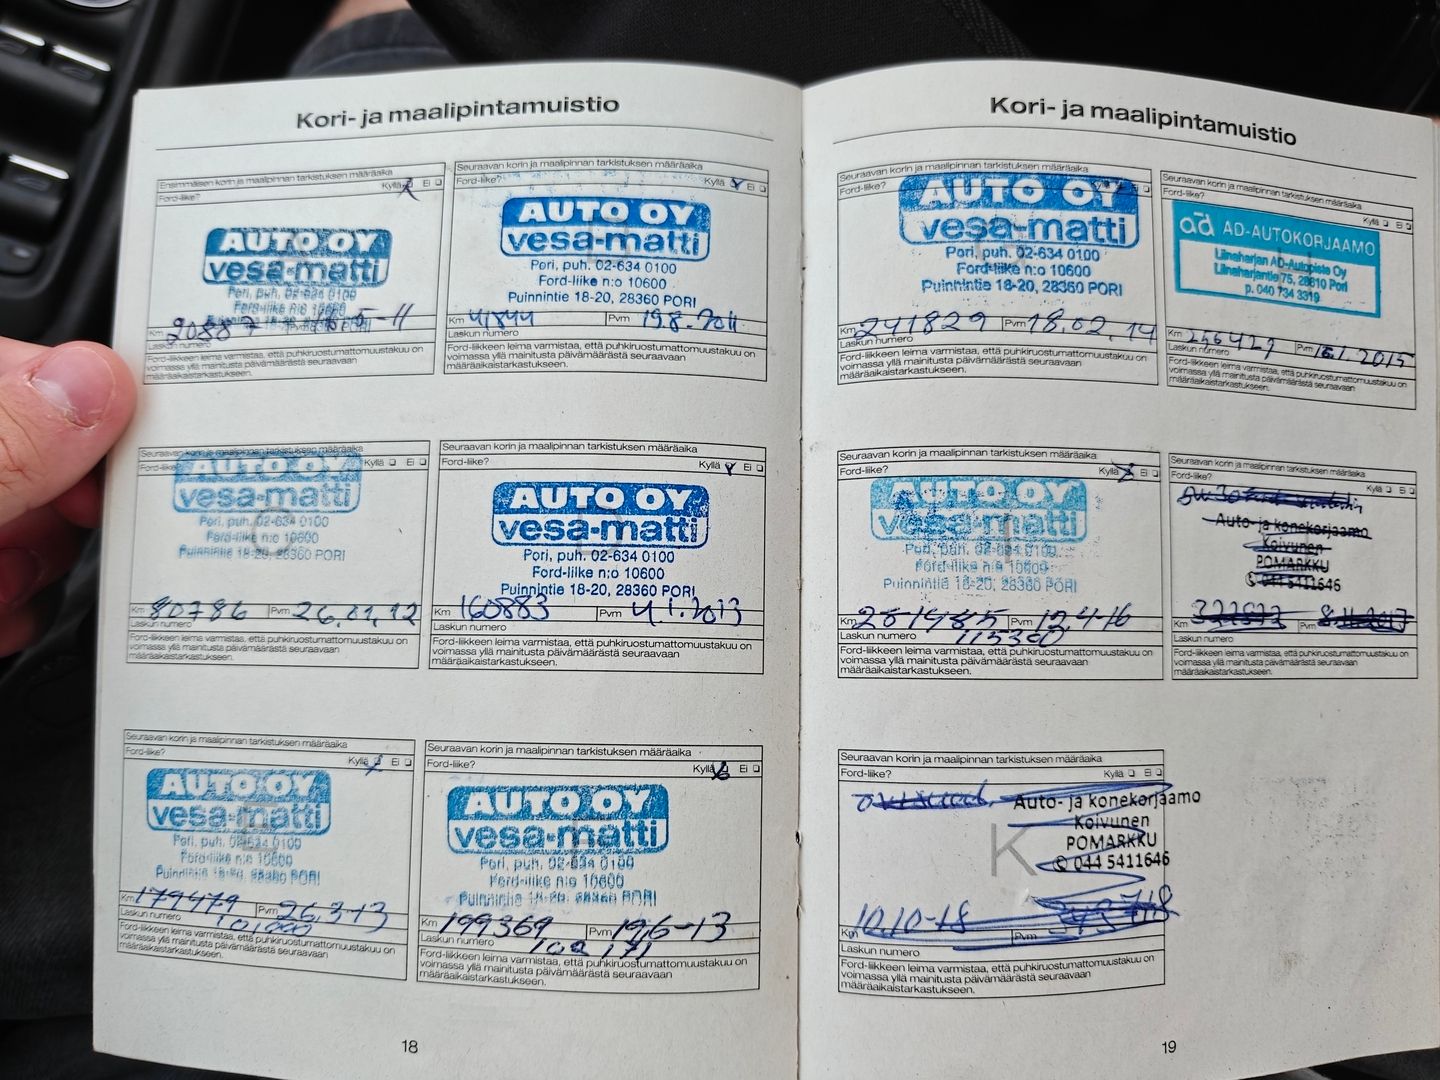 Kori- ja maalipintamuistio
Ensimmäisen korin ja maalipinnan tarkistuksen määräaika
Kyllä Ei
Ford-liike?
AUTO OY
vesa-matti
Pori, puh. 02-634 0100
Ford-liike n:o 10600
Km 20887 5-11
Laskun numero
Ford-liikkeen leima varmistaa, että puhkiruostumattomuustakuu on
voimassa yllä mainitusta päivämäärästä seuraavaan
määräaikaistarkastukseen.
Seuraavan korin ja maalipinnan tarkistuksen määräaika
Ford-liike? Kyllä Ei
AUTO OY
vesa-matti
Pori, puh. 02-634 0100
Ford-liike n:o 10600
Puinnintie 18-20, 28360 PORI
Km 41844 Pvm 19.8.2011
Laskun numero
Ford-liikkeen leima varmistaa, että puhkiruostumattomuustakuu on
voimassa yllä mainitusta päivämäärästä seuraavaan
määräaikaistarkastukseen.
Seuraavan korin ja maalipinnan tarkistuksen määräaika
Ford-liike? Kyllä Ei
AUTO OY
vesa-matti
Pori, puh. 02-634 0100
Ford-liike n:o 10600
Puinnintie 18-20, 28360 PORI
Km 80786 Pvm 26.01.12
Laskun numero
Ford-liikkeen leima varmistaa, että puhkiruostumattomuustakuu on
voimassa yllä mainitusta päivämäärästä seuraavaan
määräaikaistarkastukseen.
Seuraavan korin ja maalipinnan tarkistuksen määräaika
Ford-liike? Kyllä Ei
AUTO OY
vesa-matti
Pori, puh. 02-634 0100
Ford-liike n:o 10600
Puinnintie 18-20, 28360 PORI
Km 160883 Pvm 4.1.2013
Laskun numero
Ford-liikkeen leima varmistaa, että puhkiruostumattomuustakuu on
voimassa yllä mainitusta päivämäärästä seuraavaan
määräaikaistarkastukseen.
Seuraavan korin ja maalipinnan tarkistuksen määräaika
Ford-liike?
Kyllä Ei
AUTO OY
vesa-matti
Pori, puh. 02-634 0100
Ford-liike n:o 10600
Puinnintie 18-20, 28360 PORI
Km 179479 Pvm 26.3-13
Laskun numero
Ford-liikkeen leima varmistaa, että puhkiruostumattomuustakuu on
voimassa yllä mainitusta päivämäärästä seuraavaan
määräaikaistarkastukseen.
Seuraavan korin ja maalipinnan tarkistuksen määräaika
Ford-liike? Kyllä Ei
AUTO OY
vesa-matti
Pori, puh. 02-634 0100
Ford-liike n:o 10600
Puinnintie 18-20, 28360 PORI
Km 199369 Pvm 19.6-13
Laskun numero 102 171
Ford-liikkeen leima varmistaa, että puhkiruostumattomuustakuu on
voimassa yllä mainitusta päivämäärästä seuraavaan
määräaikaistarkastukseen.
18
Kori- ja maalipintamuistio
Seuraavan korin ja maalipinnan tarkistuksen määräaika
Ford-liike? Ei
AUTO OY
vesa-matti
Pori, puh. 02-634 0100
Ford-liike n:o 10600
Puinnintie 18-20, 28360 PORI
Km 241829 Pvm 18.02.14
Laskun numero
Ford-liikkeen leima varmistaa, että puhkiruostumattomuustakuu on
voimassa yllä mainitusta päivämäärästä seuraavaan
määräaikaistarkastukseen.
Seuraavan korin ja maalipinnan tarkistuksen määräaika
Ford-liike?
Kyllä Ei
ad AD-AUTOKORJAAMO
Liinaharjan AD-Autopiste Oy
Liinaharjantie 75, 28610 Pori
p. 040 734 3319
Km 256429 Pvm 16.1.2015
Laskun numero
Ford-liikkeen leima varmistaa, että puhkiruostumattomuustakuu on
voimassa yllä mainitusta päivämäärästä seuraavaan
määräaikaistarkastukseen.
Seuraavan korin ja maalipinnan tarkistuksen määräaika
Ford-liike? Kyllä Ei
AUTO OY
vesa-matti
Pori, puh. 02-634 0100
Ford-liike n:o 10600
Puinnintie 18-20, 28360 PORI
Km 281485 Pvm 12.4-16
Laskun numero 115360
Ford-liikkeen leima varmistaa, että puhkiruostumattomuustakuu on
voimassa yllä mainitusta päivämäärästä seuraavaan
määräaikaistarkastukseen.
Seuraavan korin ja maalipinnan tarkistuksen määräaika
Ford-liike?
Kyllä Ei
Auto- ja konekorjaamo
Koivunen
POMARKKU
044 5411646
Km Pvm 8.11.2017
Laskun numero
Ford-liikkeen leima varmistaa, että puhkiruostumattomuustakuu on
voimassa yllä mainitusta päivämäärästä seuraavaan
määräaikaistarkastukseen.
Seuraavan korin ja maalipinnan tarkistuksen määräaika
Ford-liike? Kyllä Ei
Auto- ja konekorjaamo
Koivunen
K
POMARKKU
044 5411646
10.10-18
Km Pvm
Laskun numero
Ford-liikkeen leima varmistaa, että puhkiruostumattomuustakuu on
voimassa yllä mainitusta päivämäärästä seuraavaan
määräaikaistarkastukseen.
19